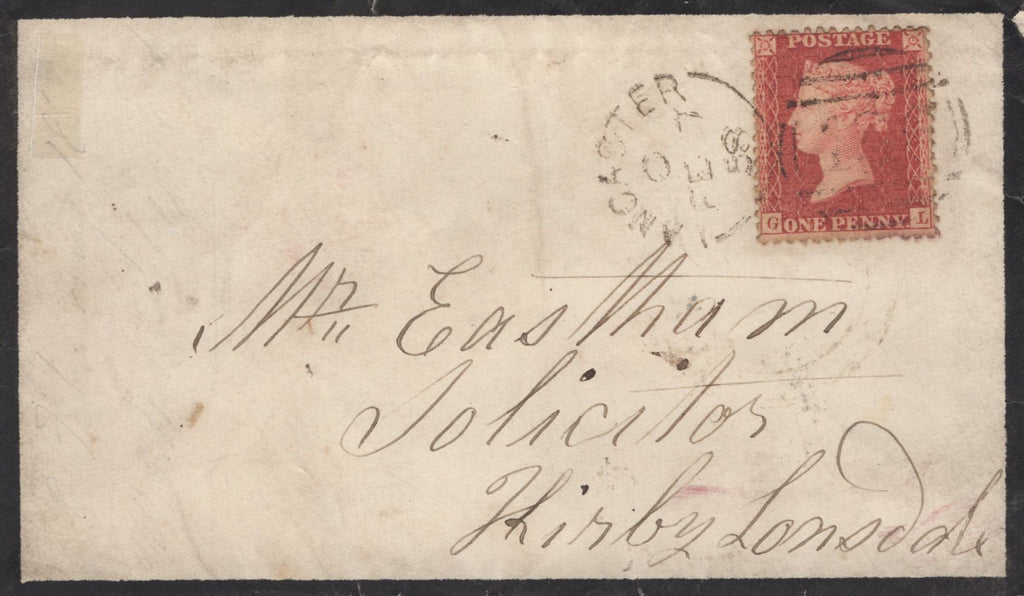 POSTAGE
LANCASTER
FE
58
G ONE PENNY L
Mr. Eastham
Solicitor
Kirby Lonsdale